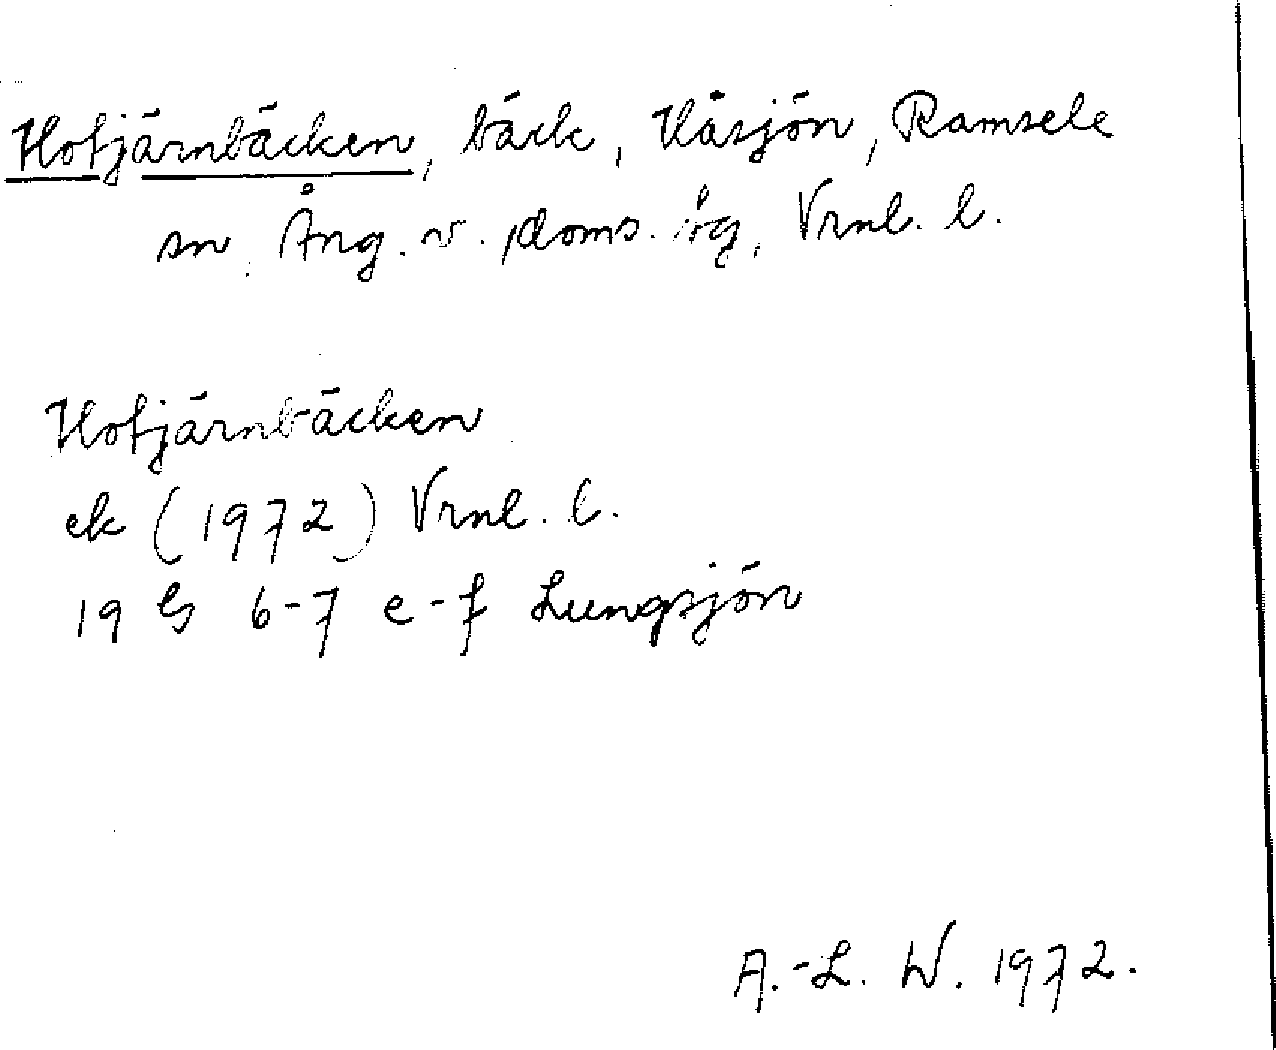 Hotjärnbäcken, bäck, Håsjön, Ramsele
sn, Ång. v. doms. sg, Vrnl. l.
Hotjärnbäcken
ek (1972) Vrnl. l.
19 G 6-7 e-f Lungsjön
A.-L. W. 1972.